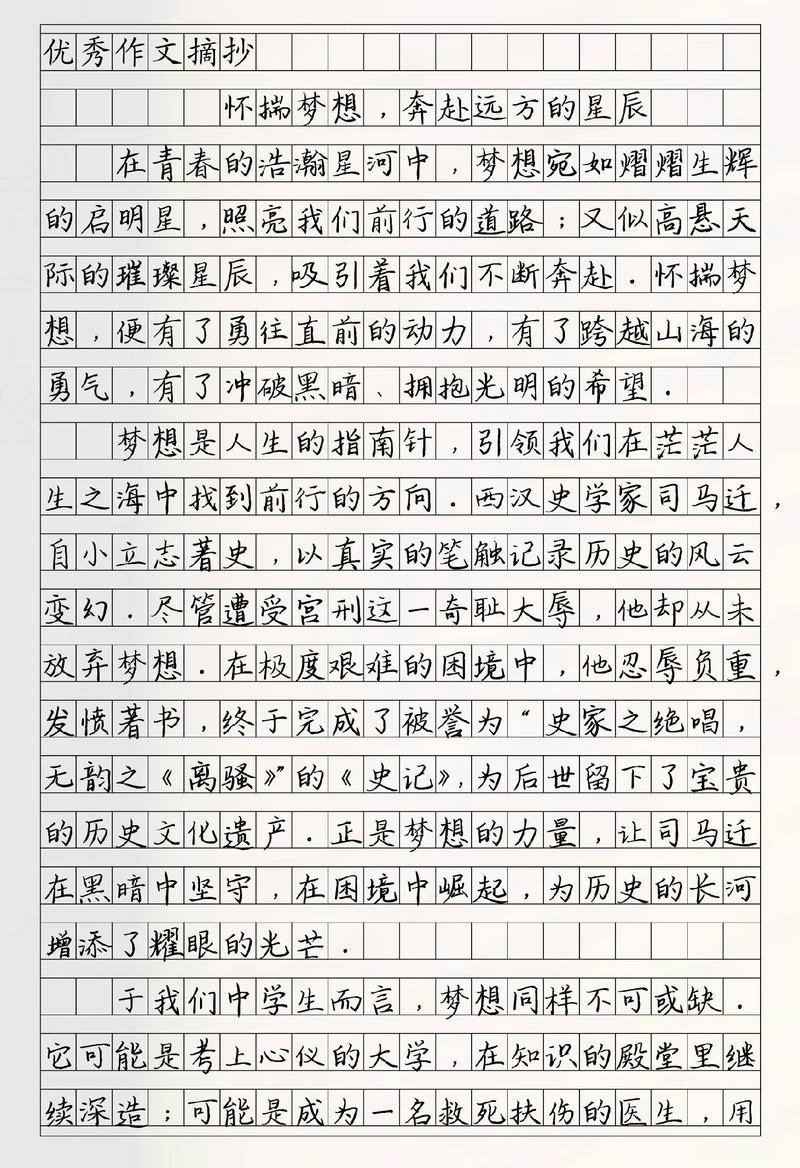 优秀作文摘抄
怀揣梦想,奔赴远方的星辰
在青春的浩瀚星河中,梦想宛如熠熠生辉
的启明星,照亮我们前行的道路;又似高悬天
际的璀璨星辰,吸引着我们不断奔赴.怀揣梦
想,便有了勇往直前的动力,有了跨越山海的
勇气,有了冲破黑暗、拥抱光明的希望.
梦想是人生的指南针,引领我们在茫茫人
生之海中找到前行的方向.西汉史学家司马迁,
自小立志著史,以真实的笔触记录历史的风云
变幻.尽管遭受宫刑这一奇耻大辱,他却从未
放弃梦想.在极度艰难的困境中,他忍辱负重,
发愤著书,终于完成了被誉为“史家之绝唱,
无韵之《离骚》”的《史记》,为后世留下了宝贵
的历史文化遗产.正是梦想的力量,让司马迁
在黑暗中坚守,在困境中崛起,为历史的长河
增添了耀眼的光芒.
于我们中学生而言,梦想同样不可或缺.
它可能是考上心仪的大学,在知识的殿堂里继
续深造;可能是成为一名救死扶伤的医生,用